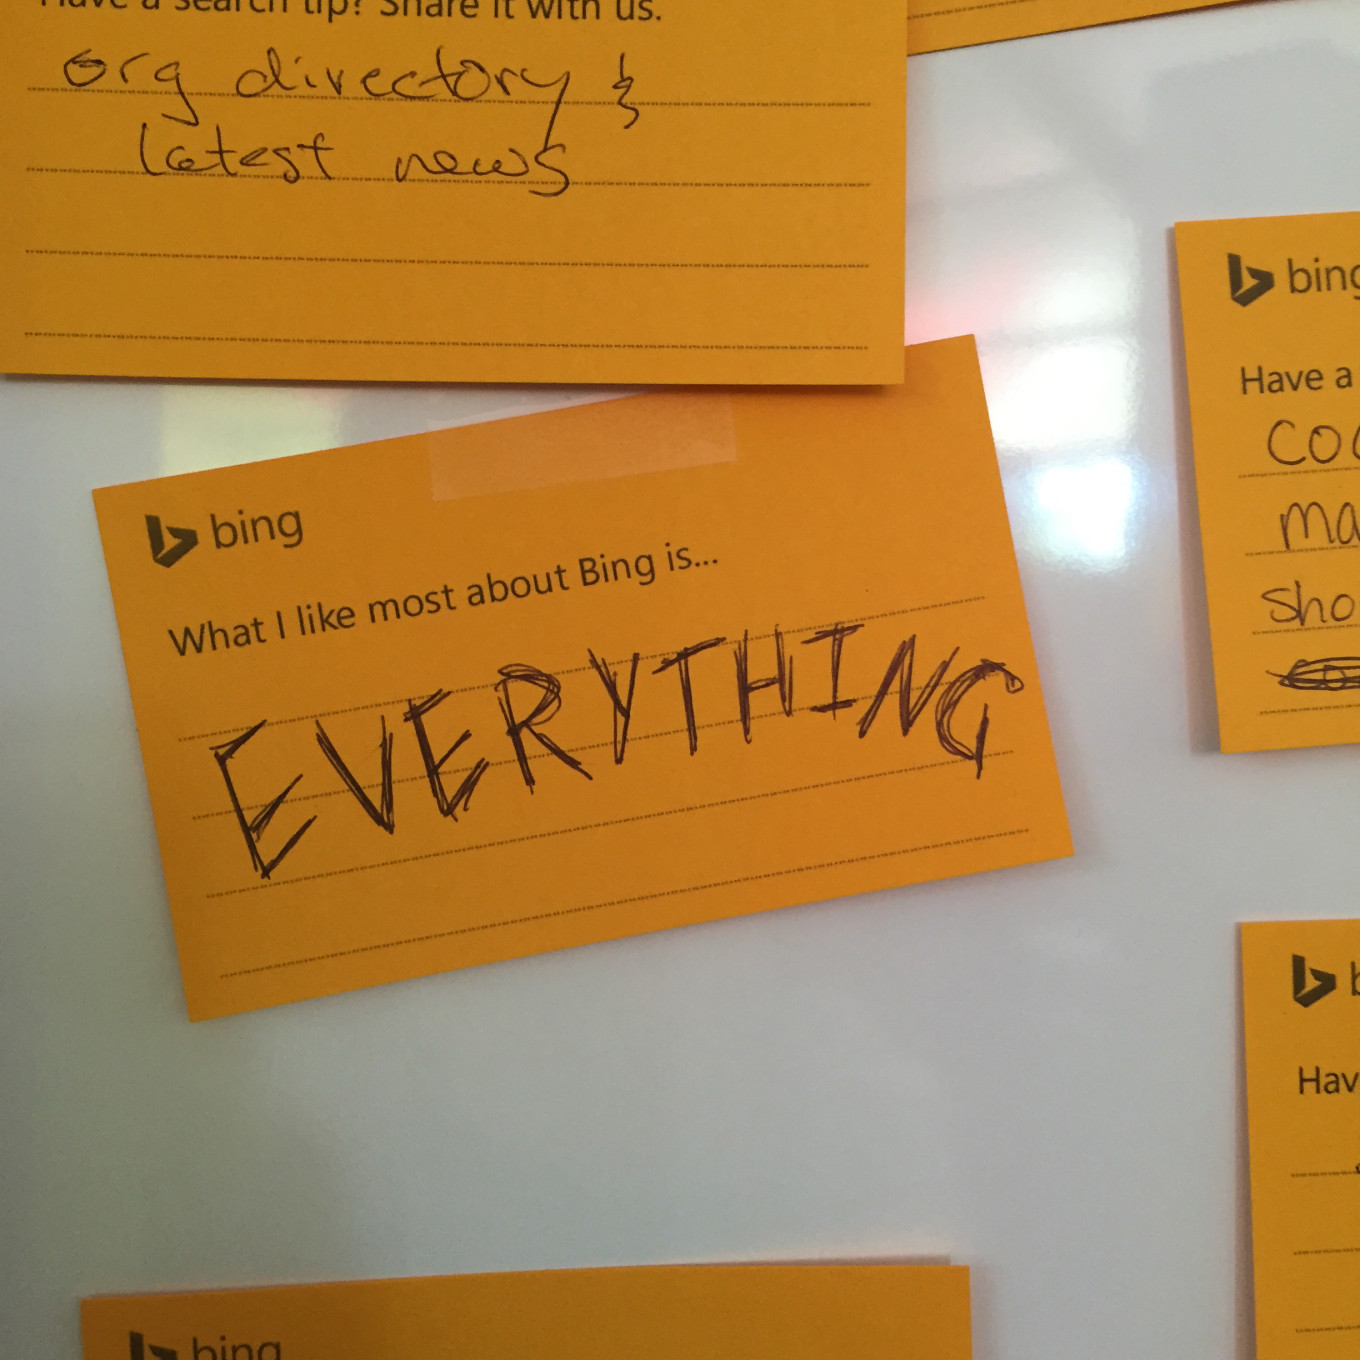 Have a search tip? Share it with us.
org directory &
latest news
bing
What I like most about Bing is...
EVERYTHING
bing
Have a
sho
bing